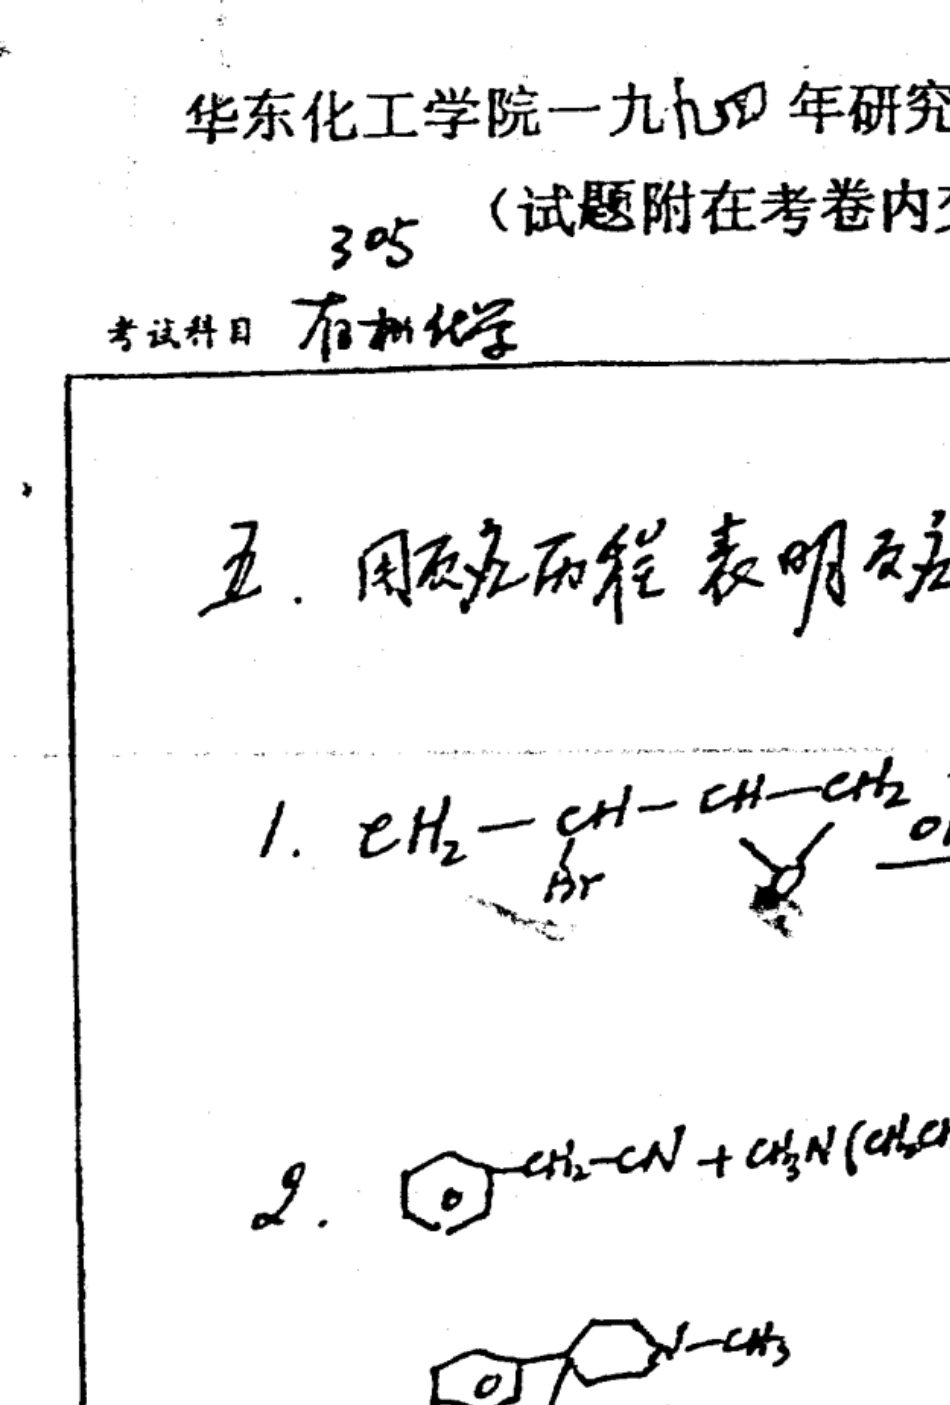 华东化工学院一九八四年研究
(试题附在考卷内交
305
考试科目 有机化学
五. 用反应历程表明反应
1. CH2—CH—CH—CH2 OH
Br O
2. CH2—CN + CH3N(CH2CH
N—CH3